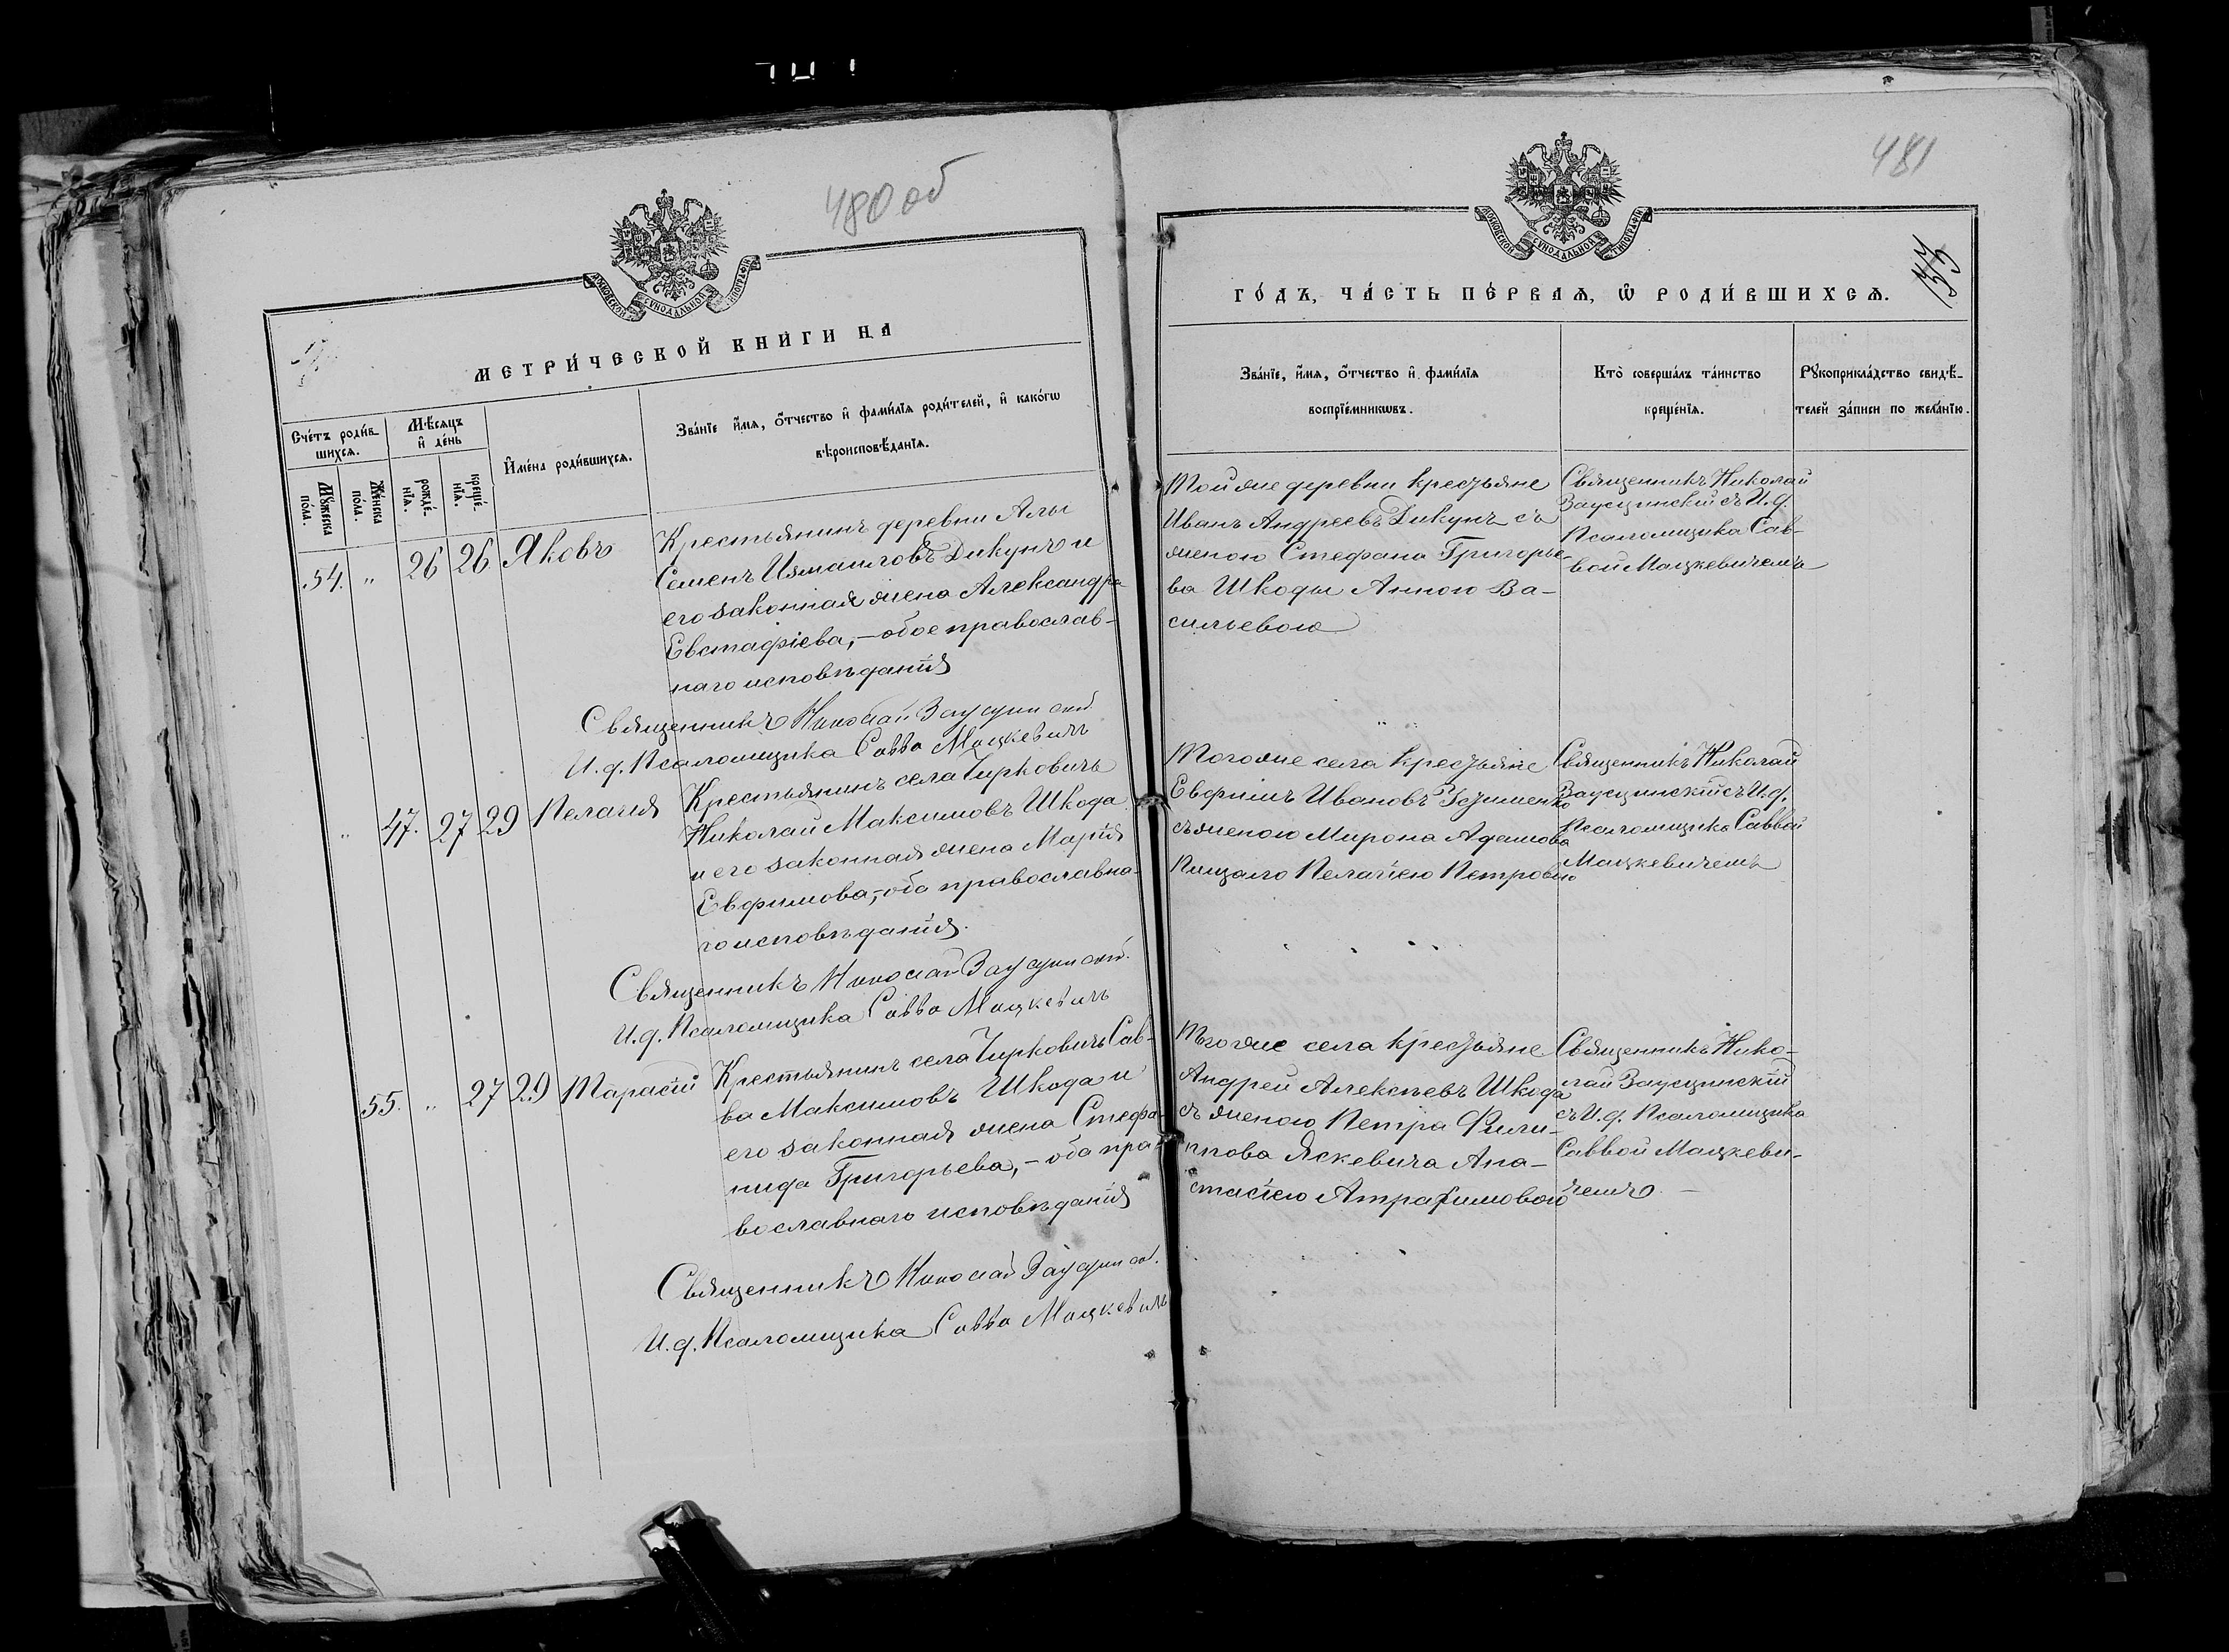 480 об
МОСКОВСКОЙ СѴНОДАЛЬНОЙ ТИПОГРАФІИ
МЕТРИ́ЧЕСКОЙ КНИ́ГИ НА
Сче́тъ роди́в-
шихсѧ.
Мѣ́сѧцъ
и҆ де́нь
Мꙋ́жеска
по́ла.
Же́нска
по́ла.
рожде́-
нїѧ.
креще́-
нїѧ.
И҆мена̀ роди́вшихсѧ.
Зва́нїе и҆́мѧ, ѻ҆́тчество и҆ фами́лїѧ роди́телей, и҆ како́гѡ
вѣроисповѣ́данїѧ.
54. " 26 26 Яковъ
Крестьянинъ деревни Алы
Семенъ Измаиловъ Дикунъ и
его законная жена Александра
Евстафіева, – обое православ-
наго исповѣданія
Священникъ Николай Заусцинскій
И. д. Псаломщика Савва Мацкевичъ
" 47. 27 29 Пелагія
Крестьянинъ села Чирковичъ
Николай Максимовъ Шкода
и его законная жена Марія
Евфимова, – оба православна-
го исповѣданія.
Священникъ Николай Заусцинскій.
И. д. Псаломщика Савва Мацкевичъ
55. " 27 29 Тарасій
Крестьянинъ села Чирковичъ Сав-
ва Максимовъ Шкода и
его законная жена Стефа-
нида Григорьева, – оба пра-
вославнаго исповѣданія
Священникъ Николай Заусцинскій.
И. д. Псаломщика Савва Мацкевичъ
481
МОСКОВСКОЙ СѴНОДАЛЬНОЙ ТИПОГРАФІИ
133
ГО́ДЪ, ЧА́СТЬ ПЕ́РВАѦ, Ѡ҆ РОДИ́ВШИХСѦ.
Зва́нїе, и҆́мѧ, ѻ҆́тчество и҆ фами́лїѧ
воспрїе́мникѡвъ.
Кто̀ соверша́лъ та́инство
креще́нїѧ.
Рꙋкоприкла́дство свидѣ́-
телей за́писи по жела́нїю.
Той же деревни крестьяне
Иванъ Андреевъ Дикунъ съ
женою Стефана Григорье-
ва Шкоды Анною Ва-
сильевою
Священникъ Николай
Заусцинскій съ И. д.
Псаломщика Сав-
вой Мацкевичемъ
Того же села крестьяне
Евфимъ Ивановъ
съ женою Мирона Адамова
Пищало Пелагіею Петровою
Священникъ Николай
Заусцинскій съ И. д.
Псаломщика Саввой
Мацкевичемъ
Того же села крестьяне
Андрей Алексѣевъ Шкода
съ женою Петра Фили-
ппова Яскевича Ана-
стасіею Атрафимовою
Священникъ Нико-
лай Заусцинскій
съ И. д. Псаломщика
Саввой Мацкеви-
чемъ. –